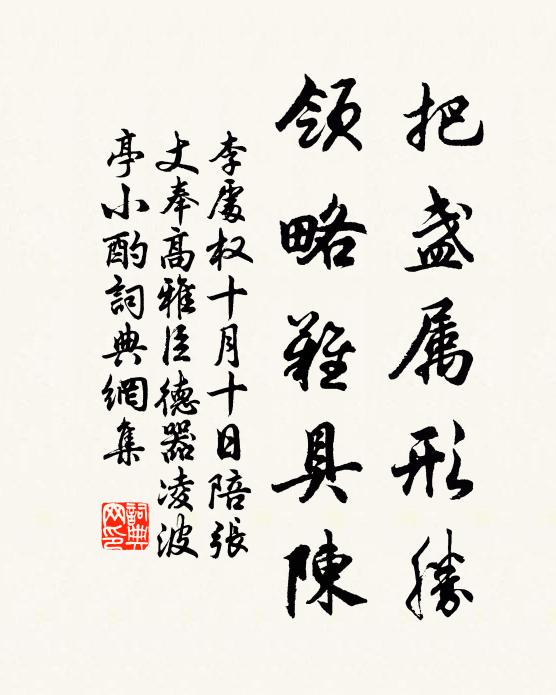 把盏属形勝
領略難具陳
李處权十月十日陪張
丈奉高雅臣德器凌波
亭小酌詞典網集
詞典网印